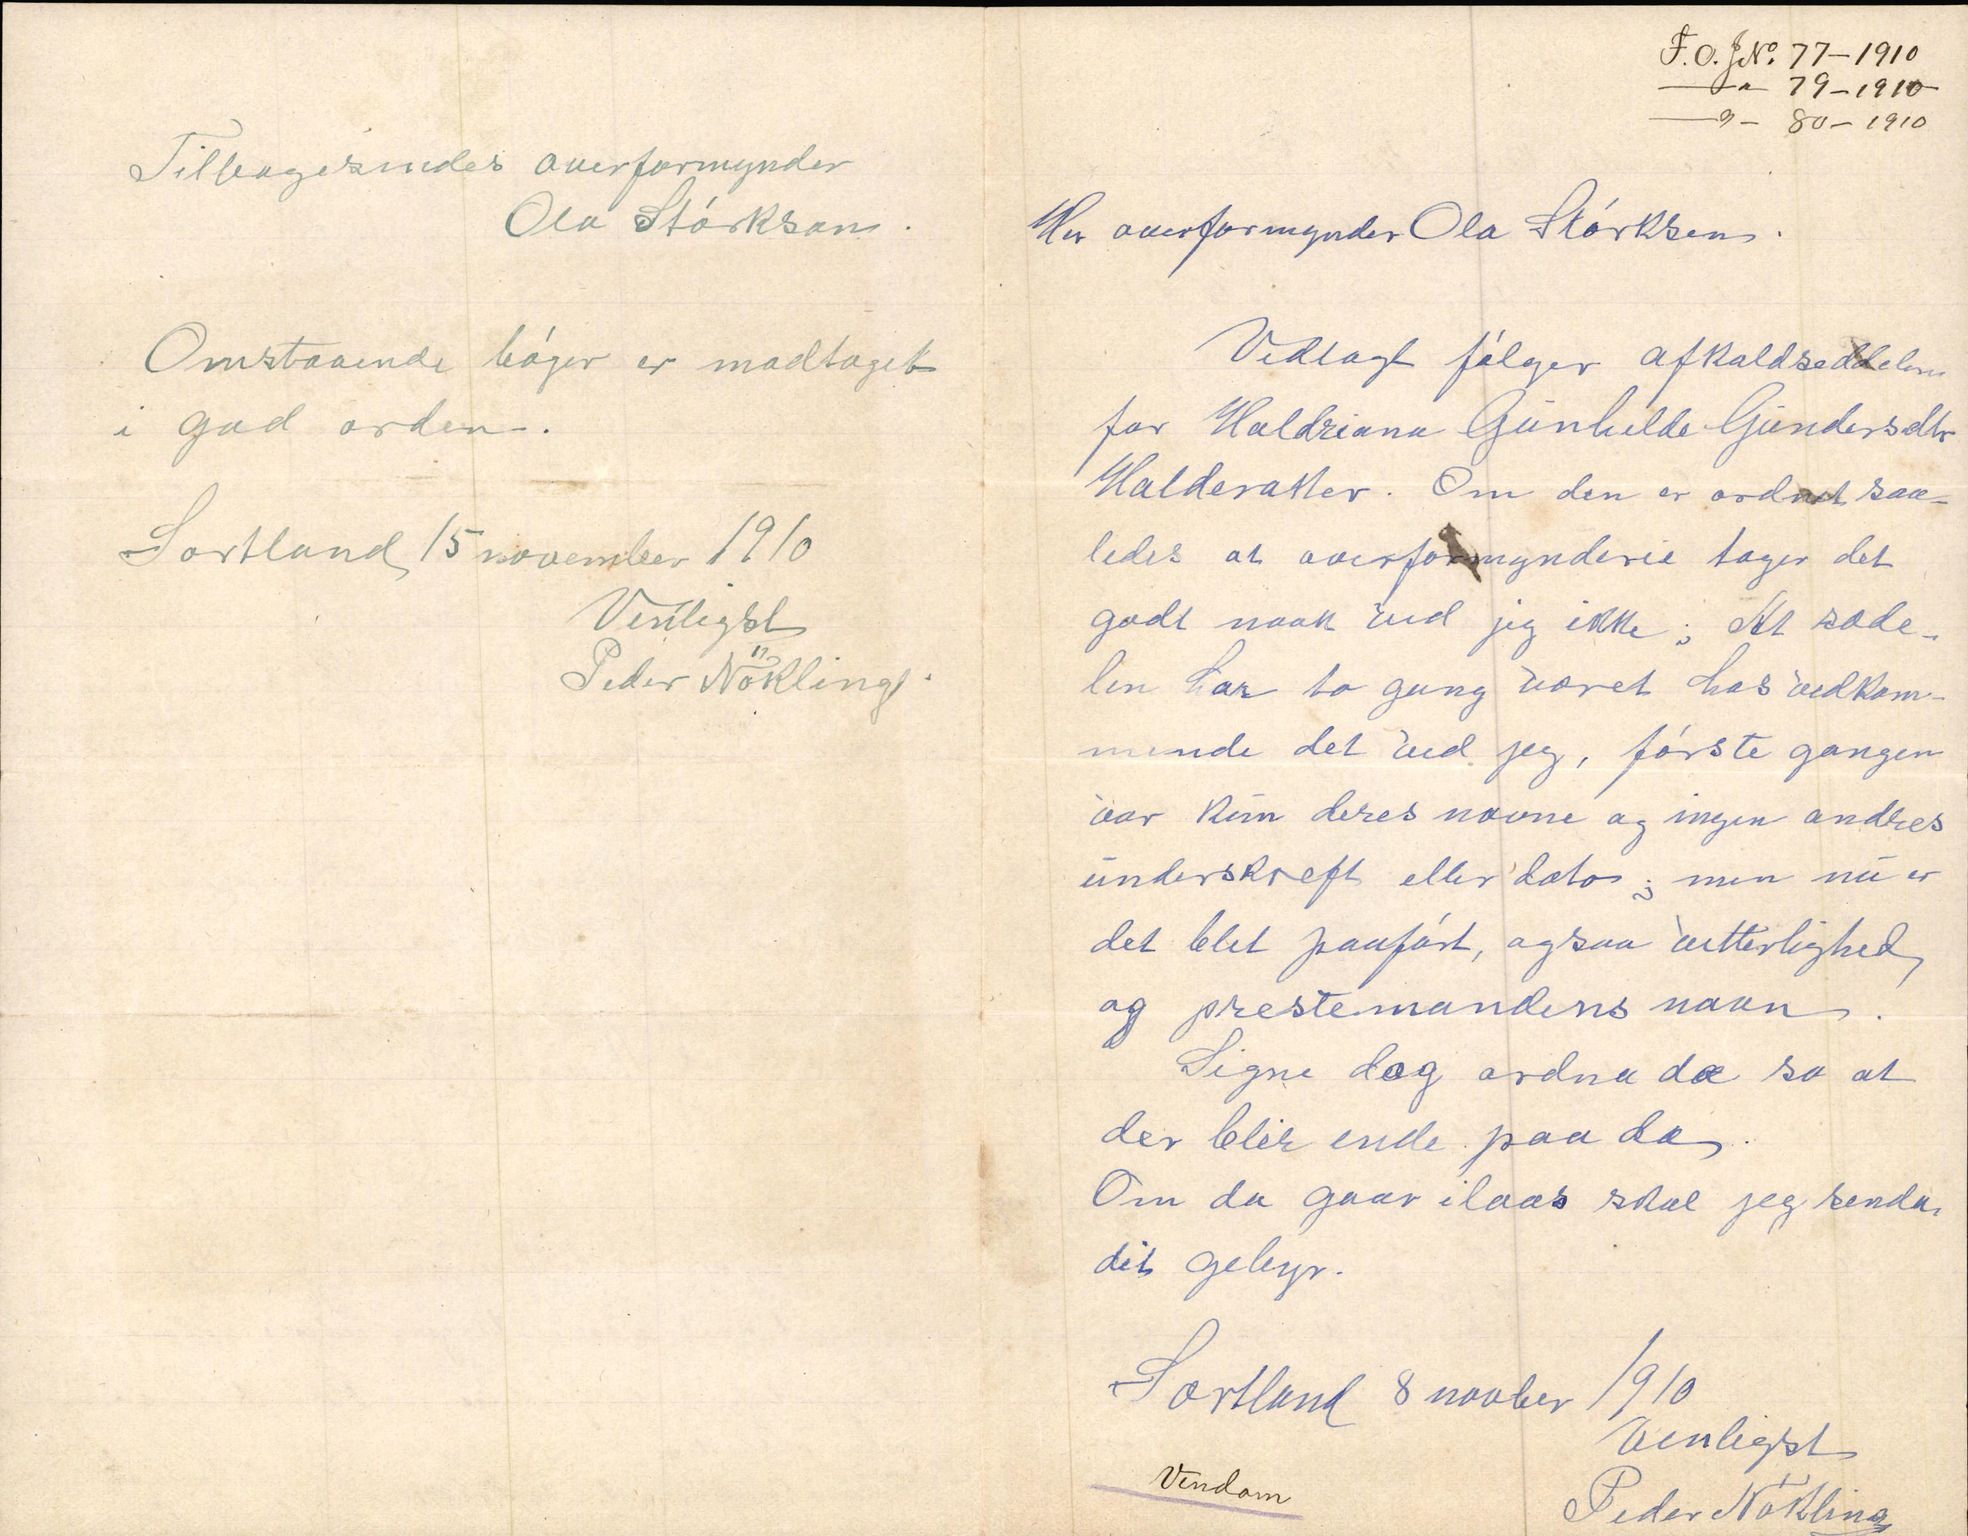 Tilbagesendes overformynder
Ola Stórksen.
Omstaaende bóger er modtaget
i god orden.
Sortland, 15 november 1910
Venligst
Peder Nökling.
F. O. J No. 77-1910
—"— 79-1910
—"— 80-1910
Her overformynder Ola Stórksen.
Vedlagt fólger afkaldseddelen
for Haldriana Gunhilde Gundersdtr
Holderaker. Om den er ordnet saa-
ledes at overformynderie tager det
godt nook ved jeg ikke; At sede-
len har to gang været hos vedkom-
mende det ved jeg, fórste gangen
var kun deres navne og ingen andres
underskreft eller dato; men nu er
det blet paafórt, ogsaa vetterlighed,
og prestemandens navn.
Signe dog ordna dæ so at
der bler ende paa dæ.
Om da gaar ilaas skal jeg senda
dit gebyr.
Sortland 8 novber 1910
Venligst
Peder Nökling
Vendom